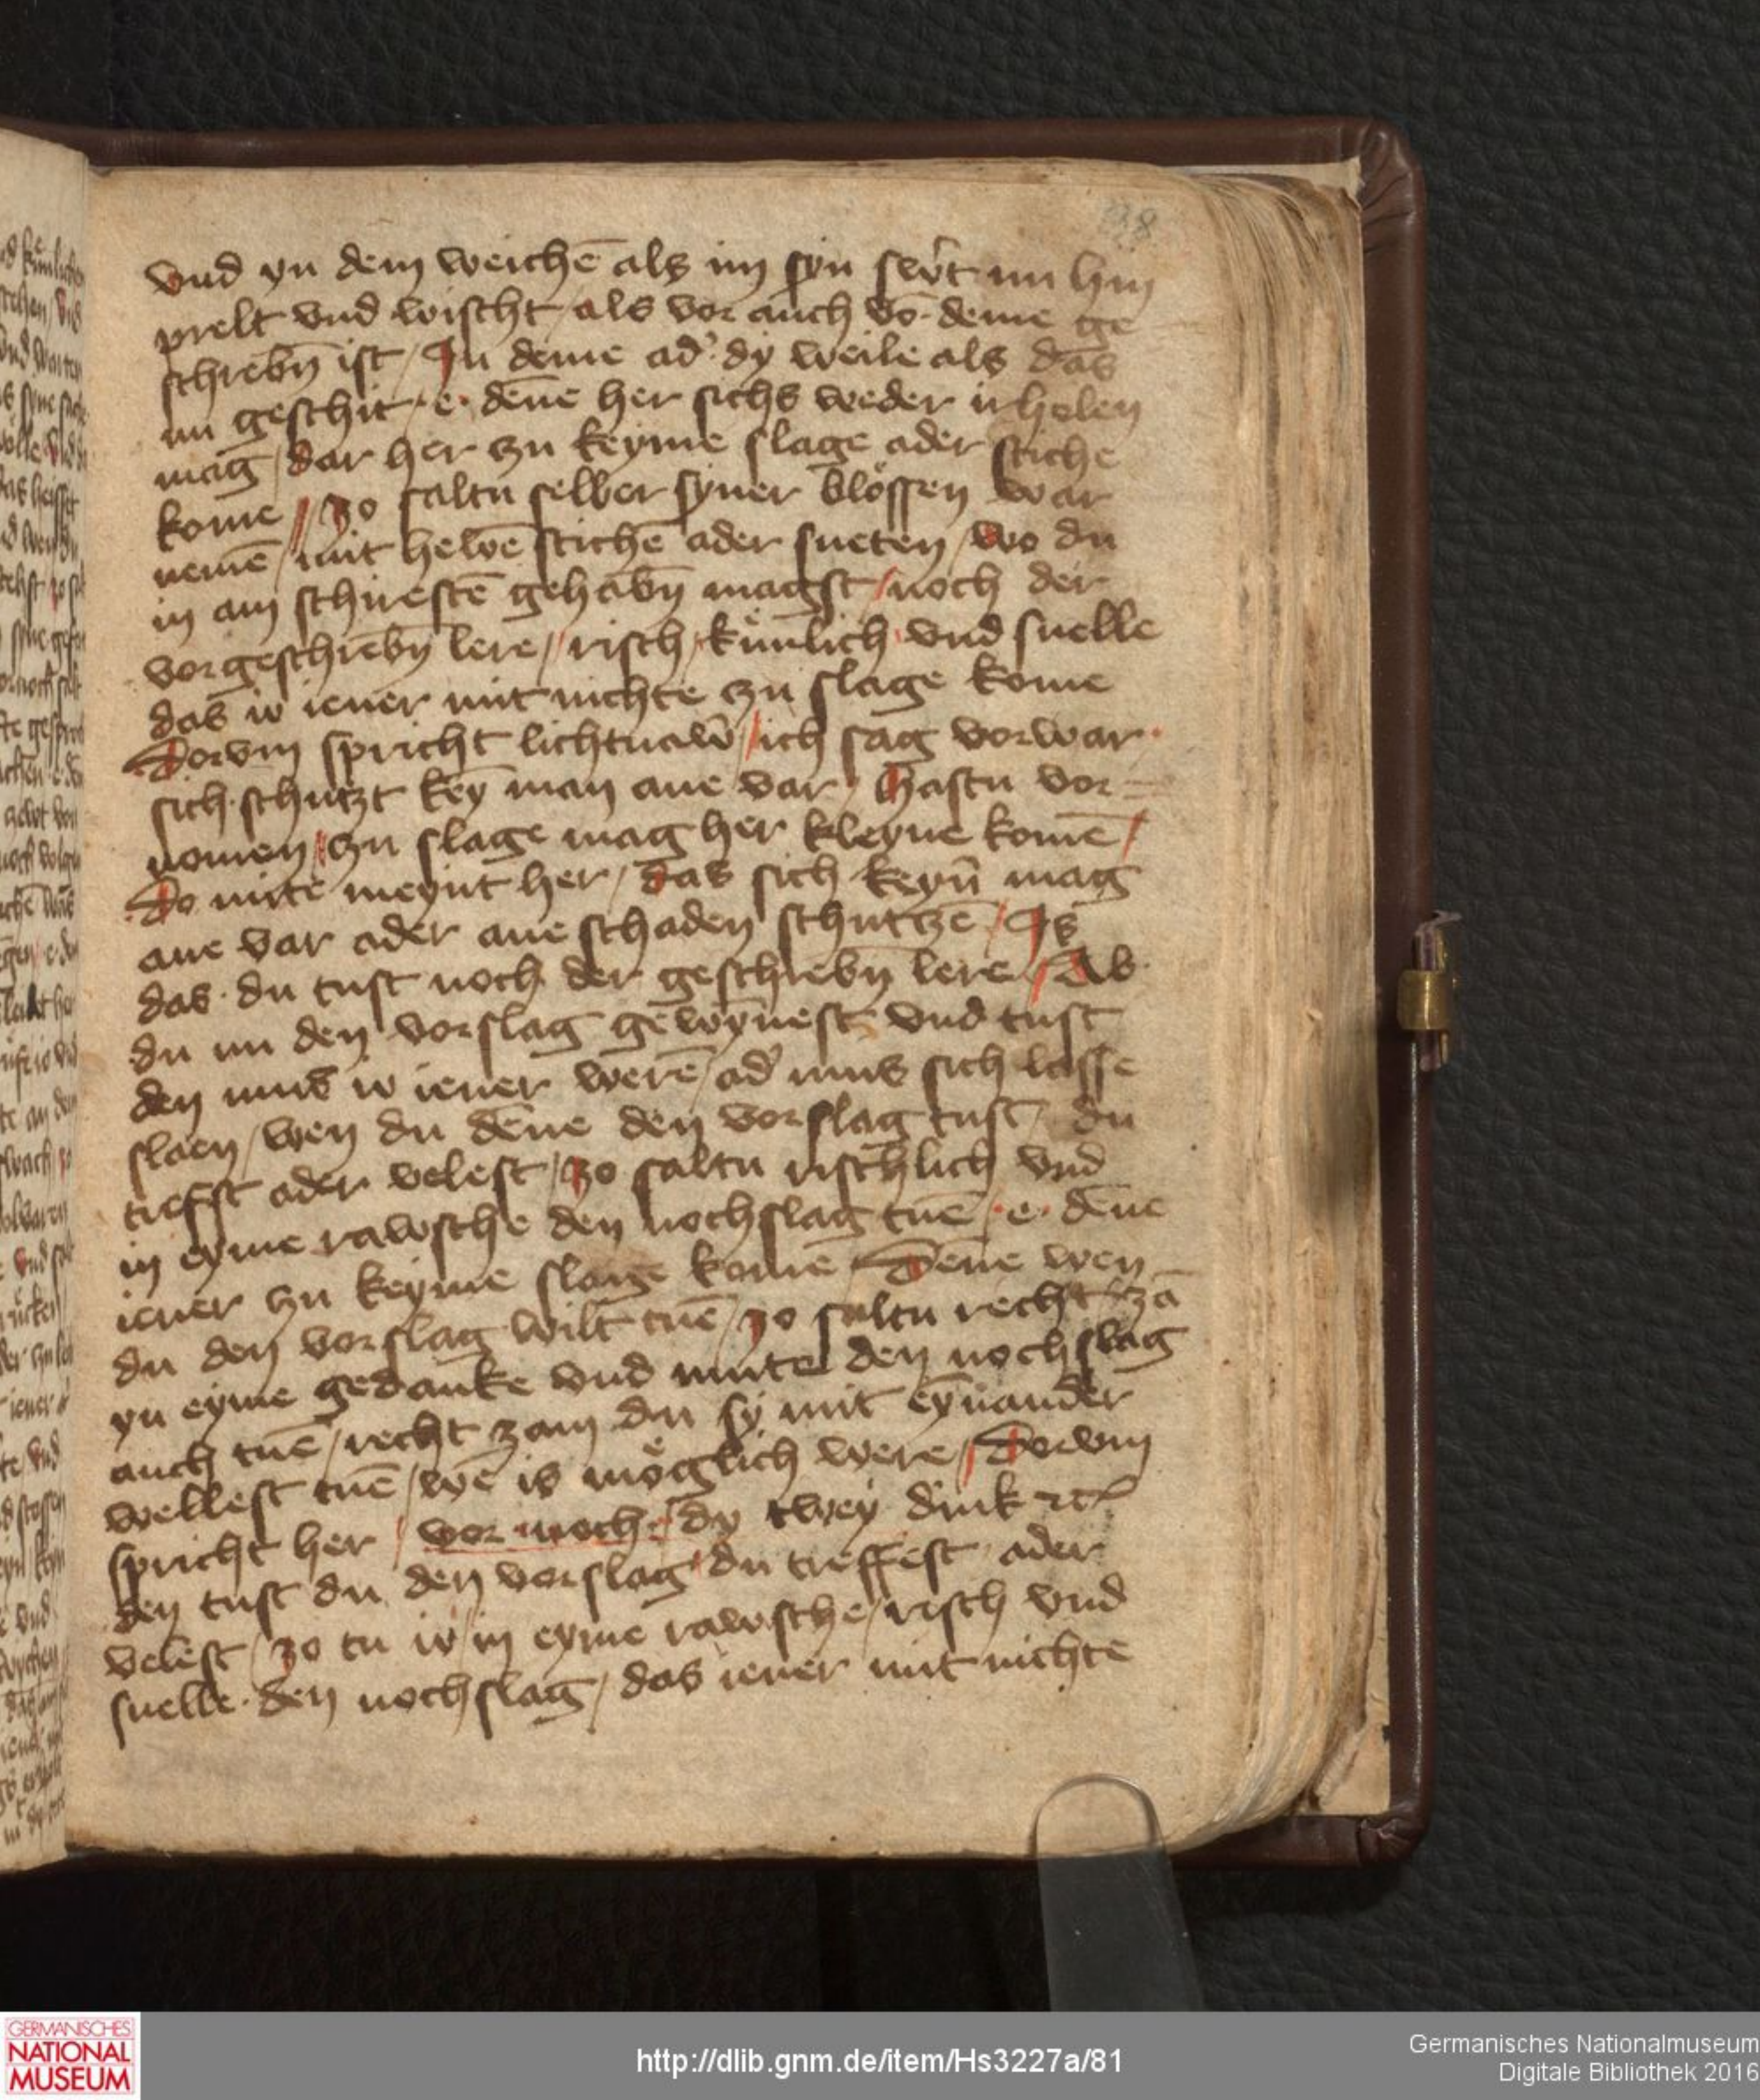 38
vnd yn dem weichē als im syn swͤt nu hin
prelt vnd wischt / als vor auch võ deme ge
schrebn̄ ist / In deme ad' dy weile als das
nu geschit / e · dēne her sichs weder irholen
mag / dar her zu keyme slage ader stiche
kome // zo saltu selber syner blössen war
nemē / mit hewē stichē ader sneten / wo du
in am schirestē gehabn̄ magst / noch der
vorgeschrebn̄ lere // risch / kůnlich · vnd snelle
das iv iener mit nichte zu slage kome
Dorvm spricht lichtnaw̄ / ich sag vorwar ·
sich · schützt key̅ man ane var / hastu vor=
nomen / zu slage mag her kleyne komē /
Do mite meynt her / das sich keyn̄ mag
ane var ader ane schaden schutzē / Is
das · du tust noch der geschrebn̄ lere / Ab
du nu den vorslag gewȳnest vnd tust
den mus iv iener werē / ad' mus sich lasse
slaen / wen du dēne den vorslag tust / du
trefst ader velest / zo saltu rischlich vnd
in eyme rawsche den nochslag tuē · e · dēne
iener zu keyme slage komē / Dēne wen
du den vorslag wilt tuē / zo saltu recht zā
yn eyme gedanke vnd mute den nochslag
auch tuē / recht zam du sy mit eynander
wellest tuē / wē is möglich were / Dorvm
spricht her / vor noch · dy twey dink etc
den tust du den vorslag / du treffest ader
velest / zo tu iv in eyme rawsche / risch vnd
snelle · den nochslag / das iener mit nichte
GERMANISCHES
NATIONAL
MUSEUM
http://dlib.gnm.de/item/Hs3227a/81
Germanisches Nationalmuseum
Digitale Bibliothek 2016